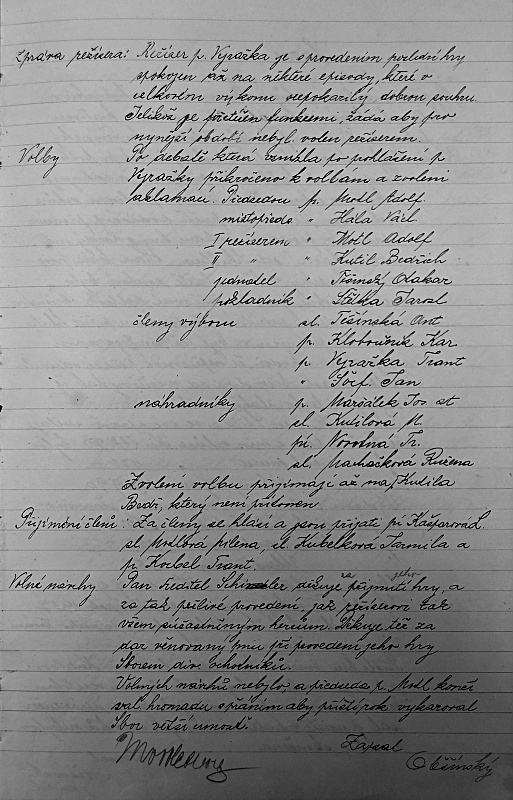 Zpráva režiséra: Režiser p. Vyražka je s provedením poslední hry
spokojen až na některé episody, které v
celkovém výkonu nepokazily dobrou souhru.
Jelikož je přetížen funkcemi, žádá aby pro
nynější období nebyl volen režiserem.
Volby Po debatě která vznikla po prohlášení p
Vyražky přikročeno k volbám a zvoleni
aklamací. Předsedou p. Motl Adolf.
místopředs " Hála Václ
I režiserem " Motl Adolf
II " " Kutil Bedřich
jednatel " Těšínský Otakar
pokladník " Stilka Jarosl
členy výboru sl. Tišínská Ant
p. Klobočník Kar
p. Vyražka Frant
" Šöcf Jan
náhradníky p. Maršálek Jos. st
sl. Kutilová M
pí. Novotná Fr.
sl. Machačková Růžena
Zvolení volbu přijímají až na p Kutila
Bedř, který není přítomen
Přijímání členů: Za členy se hlásí a jsou přijati pí Kašparová L.
sl. Motlová Milena, sl. Kubelková Jarmila a
p. Frant.
Volné návrhy Pan ředitel děkuje za přijmutí jeho hry, a
za tak pečlivé provedení, jak režiserovi tak
všem súčastněným hercům. Děkuje též za
dar věnovaný mu při provedení jeho hry
Sborem div. ochotníků.
Volných návrhů nebylo, a předseda p. Motl končí
val. hromadu s přáním aby příští rok vykazoval
Sbor větší činnost.
Zapsal